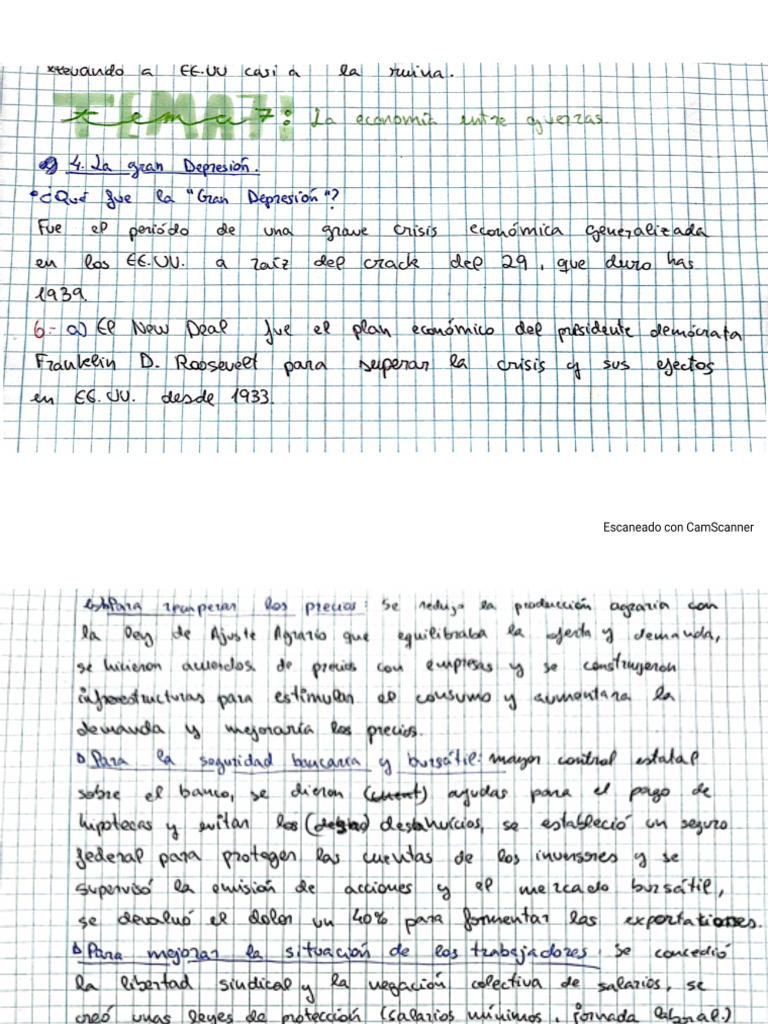 xtevando a EE.UU casi a la ruina.
Tema 7: La economía entre guerras.
4. La gran Depresión.
•¿Qué fue la "Gran Depresión"?
Fue el periódo de una grave crisis económica generalizada
en los EE.UU. a raíz del crack del 29, que duro has
1939.
6.- a) El New Deal fue el plan económico del presidente demócrata
Franklin D. Roosevelt para superar la crisis y sus efectos
en EE.UU. desde 1933.
Escaneado con CamScanner
Para recuperar los precios: Se redujo la producción agraria con
la Ley de Ajuste Agrario que equilibraba la oferta y demanda,
se hicieron acuerdos de precios con empresas y se construyeron
infraestructuras para estimular el consumo y aumentara la
demanda y mejoraría los precios.
Para la seguridad bancaria y bursátil: mayor control estatal
sobre el banco, se dieron (cuent) ayudas para el pago de
hipotecas y evitar los deshaucios, se estableció un seguro
federal para proteger las cuentas de los inversores y se
supervisó la emisión de acciones y el mercado bursátil,
se devaluó el dolar un 40% para formentar las exportationes.
Para mejorar la situación de los trabajadores: Se concedió
la libertad sindical y la negación colectiva de salarios, se
creó unas leyes de protección (salarios mínimos, jornada laboral.)